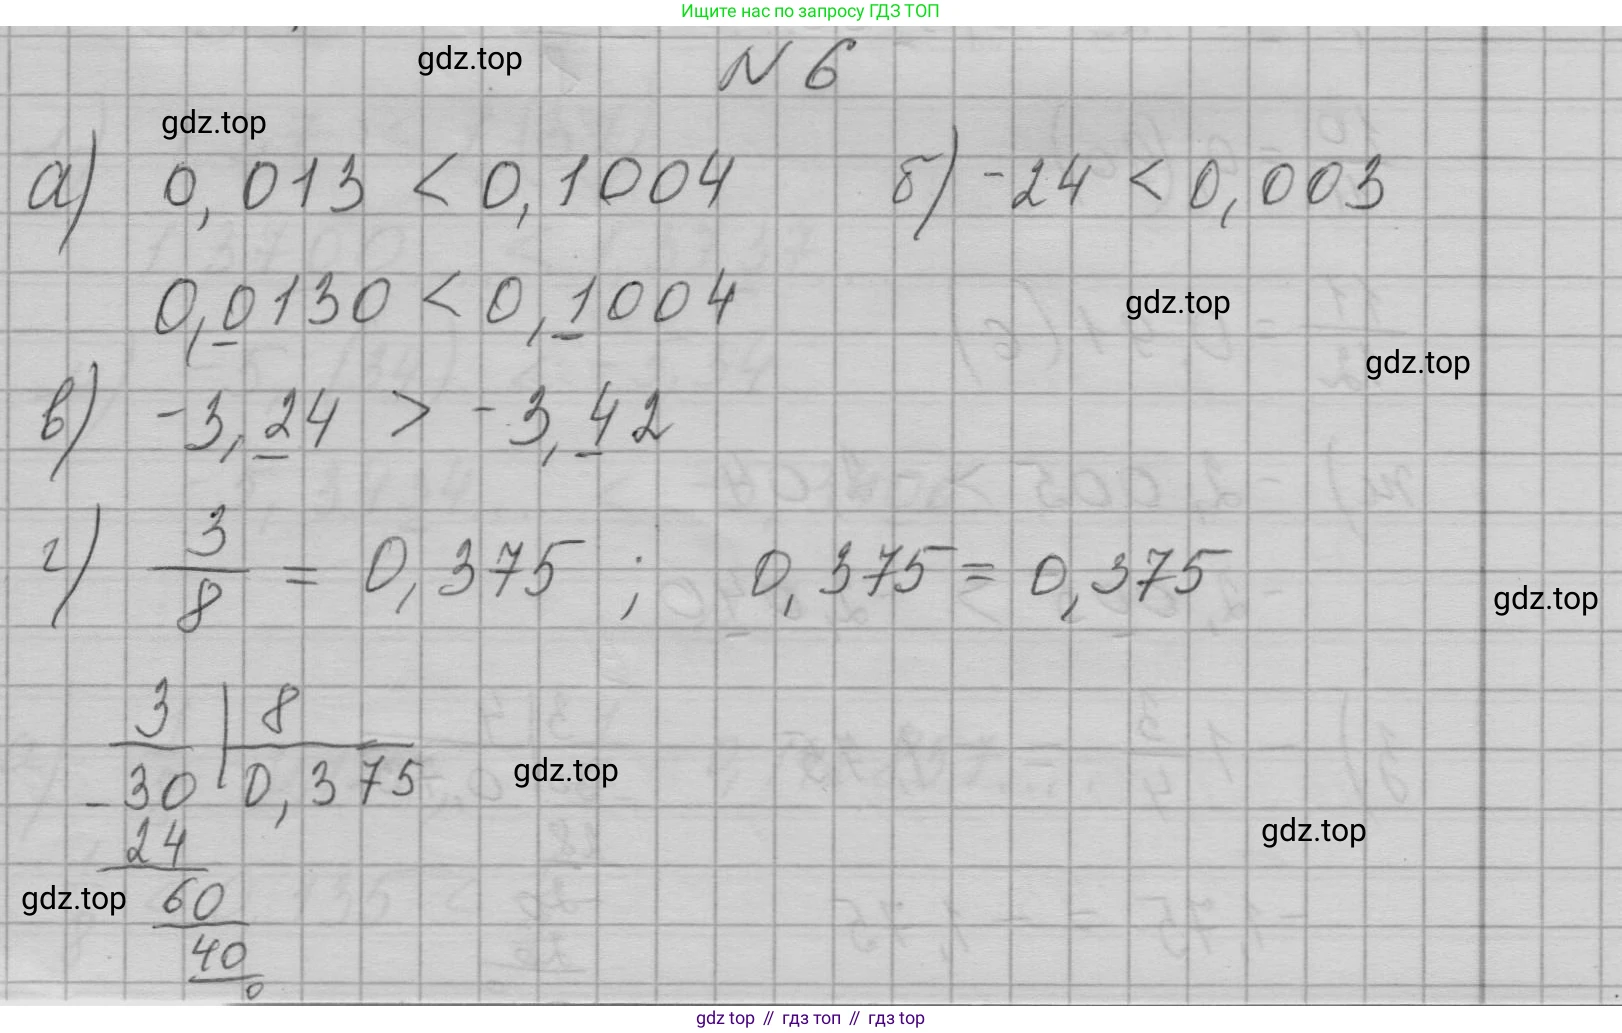 Ищите нас по запросу ГДЗ ТОП
gdz.top
N 6
gdz.top
а) 0,013 < 0,1004 б) -24 < 0,003
0,0130 < 0,1004
gdz.top
gdz.top
в) -3,24 > -3,42
г) 3/8 = 0,375 ; 0,375 = 0,375
gdz.top
3 | 8
-30 | 0,375
gdz.top
24
gdz.top
60
gdz.top
40
0
gdz top // гдз топ // гдз top